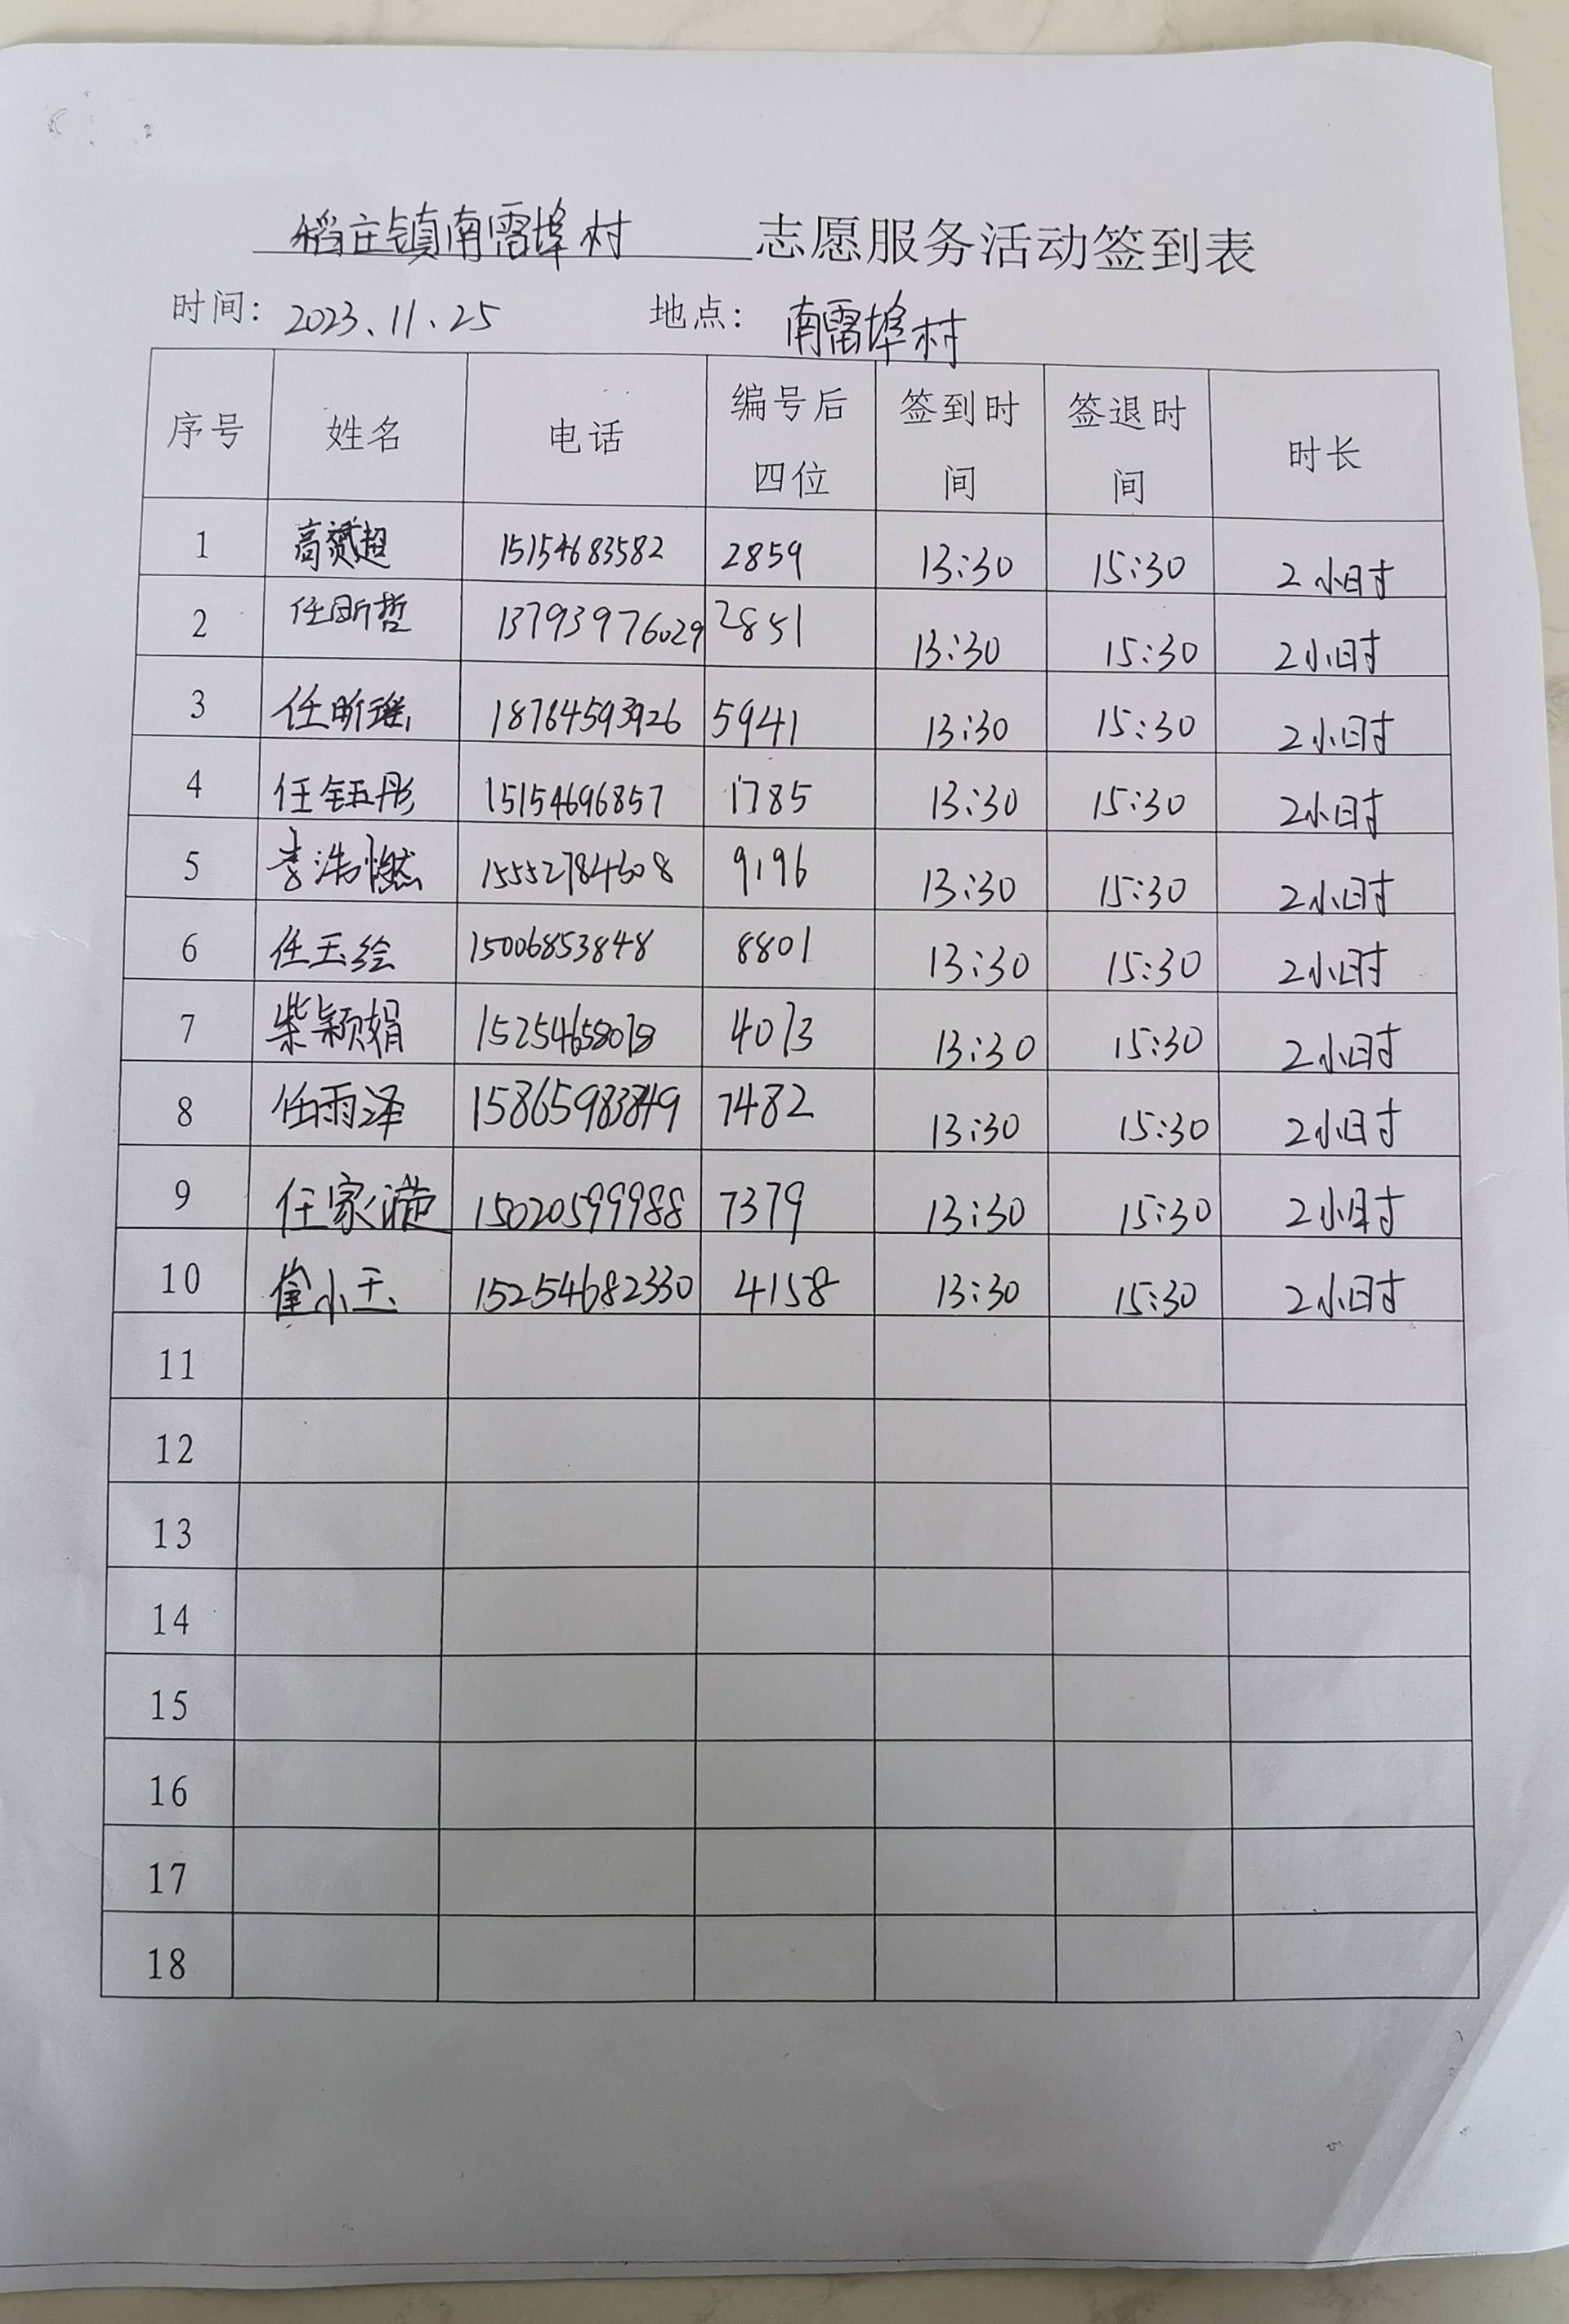 稻庄镇南雷埠村 志愿服务活动签到表
时间：2023、11、25 地点：南雷埠村
序号 姓名 电话 编号后四位 签到时间 签退时间 时长
1 高赟超 15154683582 2859 13:30 15:30 2小时
2 任昕哲 13793976029 2851 13:30 15:30 2小时
3 任昕瑶 18764593926 5941 13:30 15:30 2小时
4 任钰彤 15154696857 1785 13:30 15:30 2小时
5 李浩燃 15552784308 9196 13:30 15:30 2小时
6 任玉绘 15006853848 8801 13:30 15:30 2小时
7 柴颖娟 4013 13:30 15:30 2小时
8 任雨泽 15865983849 7482 13:30 15:30 2小时
9 任家滟 15020599988 7379 13:30 15:30 2小时
10 崔小玉 15254682330 4158 13:30 15:30 2小时
11
12
13
14
15
16
17
18